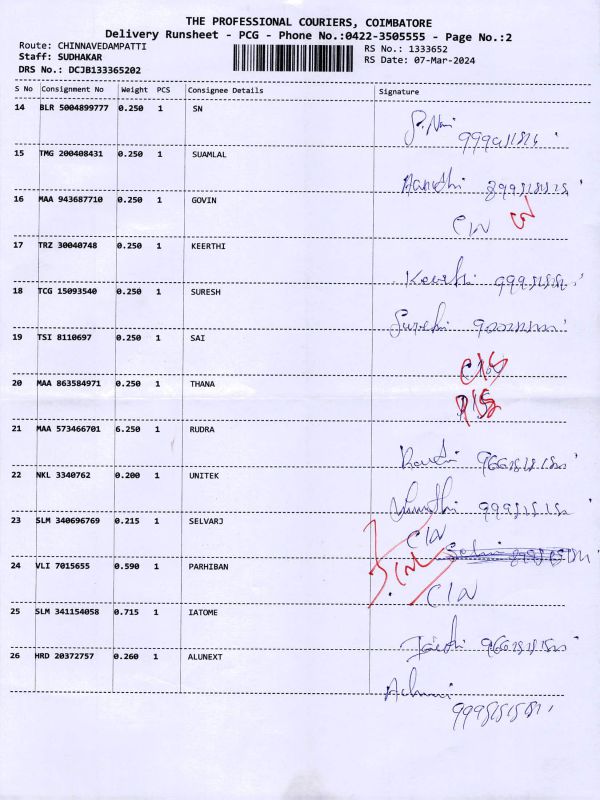 THE PROFESSIONAL COURIERS, COIMBATORE
Delivery Runsheet - PCG - Phone No.:0422-3505555 - Page No.:2
Route: CHINNAVEDAMPATTI RS No.: 1333652
Staff: SUDHAKAR RS Date: 07-Mar-2024
DRS No.: DCJB133365202
S No Consignment No Weight PCS Consignee Details Signature
14 BLR 5004899777 0.250 1 SN
15 TMG 200408431 0.250 1 SUAMLAL
16 MAA 943687710 0.250 1 GOVIN
C/N
17 TRZ 30040748 0.250 1 KEERTHI
Keerthi
18 TCG 15093540 0.250 1 SURESH
Suresh
19 TSI 8110697 0.250 1 SAI
20 MAA 863584971 0.250 1 THANA
21 MAA 573466701 6.250 1 RUDRA
22 NKL 3340762 0.200 1 UNITEK
23 SLM 340696769 0.215 1 SELVARJ
C/N
24 VLI 7015655 0.590 1 PARHIBAN
C/N
25 SLM 341154058 0.715 1 IATOME
26 HRD 20372757 0.260 1 ALUNEXT